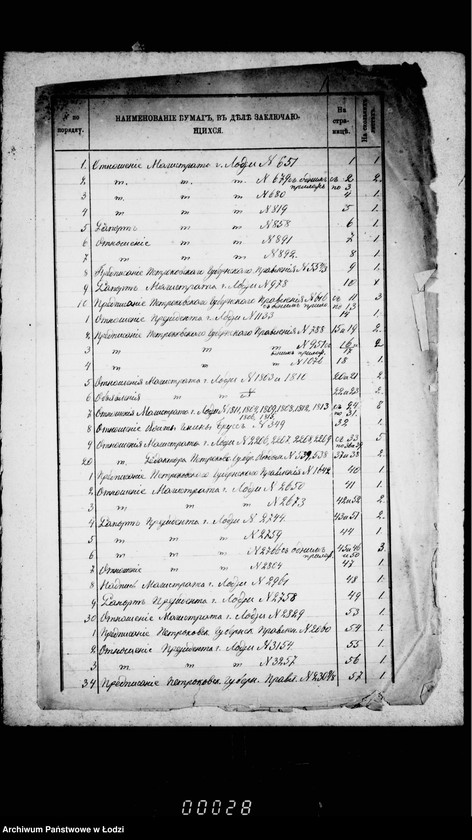 № по порядку.
НАИМЕНОВАНІЕ БУМАГЪ, ВЪ ДѢЛѢ ЗАКЛЮЧАЮЩИХСЯ.
На страницѣ.
1. Отношеніе Магистрата г. Лодзи № 651 1 1.
2. т. т. т № 679 съ однимъ прилож. съ 2 по 3 2.
3 т. т. т № 680 4 1.
4 т т т № 819 5 1.
5 Рапортъ т т № 858 6 1.
6 Отношеніе т т № 891 7 1.
7 т т т № 892. 8 1.
8 Предписаніе Петроковскаго Губернскаго Правленія 9 1.
9 Рапортъ Магистрата г. Лодзи № 978 10
10 Предписаніе Петроковскаго Губернскаго Правленія № 616 съ 11 по 13 3
1 Отношеніе Президента г. Лодзи № 1133 14 1.
2. Предписаніе Петроковскаго Губернскаго Правленія № 788 15 и 19 2.
3 т т т № 951 2
4 т т т № 1076 18 1.
5 Отношенія Магистрата г. Лодзи № 1803 и 1810 20 и 21 2.
6 Объявленія т т 22 и 23 2.
7 Отношенія Магистрата г. Лодзи № 1811, 1808, 1809, 1813 съ 24 по 31. 8
8 Отношеніе № 349 32 1.
9 Отношенія Магистрата г. Лодзи № 2266, 2267, 2268, 2269 5
20 т. Редактора Петроков. Губер. № 539, 538 37 и 38 2.
1 Предписаніе Петроковскаго Губернскаго Правленія № 1642 40 1.
2. Отношеніе Магистрата г. Лодзи № 2650 41 1.
3 т т т № 2673 42 и 52 2.
4 Рапортъ Президента г. Лодзи № 2744. 43 и 51 2.
5 т т т № 2759 44 1.
6 т т т № 2766 съ однимъ прилож. 45 и 46 и 50 3.
7 Отношеніе т т № 2804 47 1.
8 Надпись Магистрата г. Лодзи № 2961 48 1.
9 Рапортъ Президента г. Лодзи № 2758 49 1.
30 Отношеніе Магистрата г. Лодзи № 2829 53 1.
1 Предписаніе Петроковск. Губернск. Правлен. № 2060 54 1.
2 Отношеніе Президента г. Лодзи № 3154. 55 1.
3 т. т т № 3257. 56 1.
34 Предписаніе Петроковск. Губерн. Правл. 57 1.
00028
Archiwum Państwowe w Łodzi